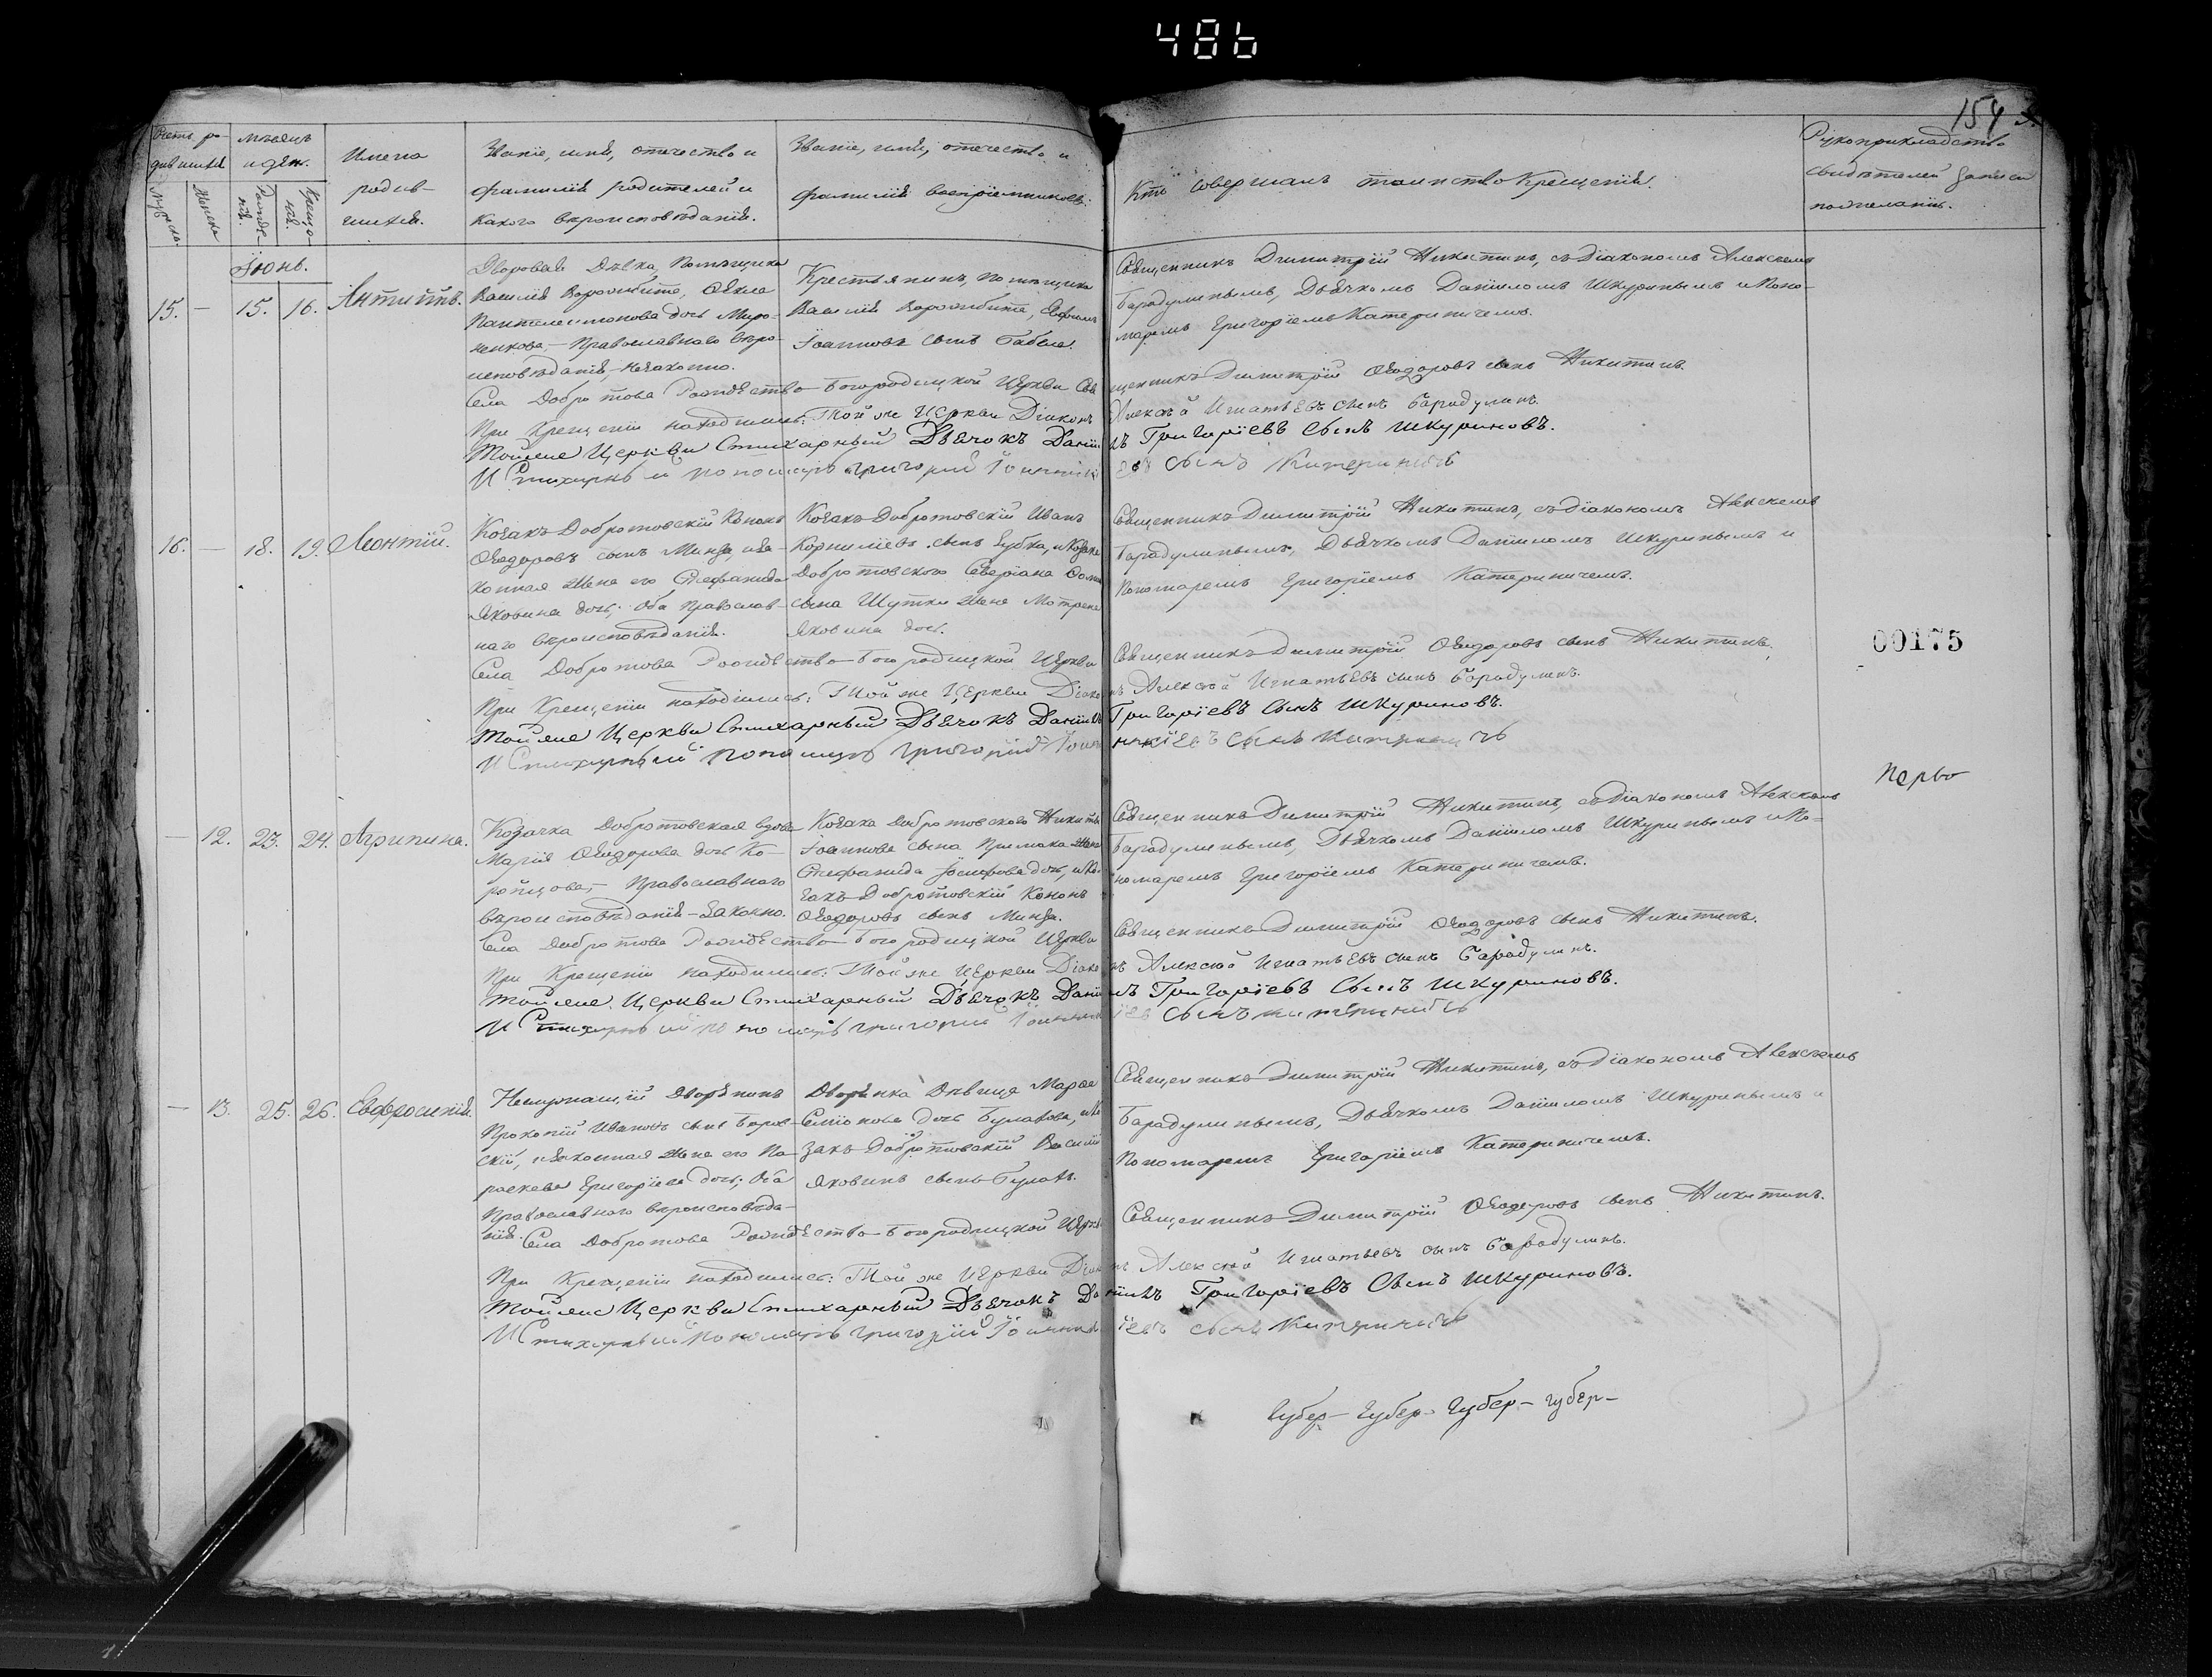 486
154
Счетъ ро-
дившихся
Мѣсяцъ
и день.
Имена
родив-
шихся.
Званіе, имя, отечество и
фамилія родителей и
какого вѣроисповѣданія.
Званіе, имя, отечество и
фамилія воспріемниковъ.
Кто совершалъ таинство Крещенія.
Рукоприкладство
свидѣтелей записи
по желанію.
Мужеска.
Женска
Рожде
нія.
Креще-
нія.
Іюнь.
15. — 15. 16.
Дворовая Дѣвка, Помѣщика
Василія Ворожбита, Ѳекла
Пантелеимонова дочь Миро-
ненкова, — Православнаго вѣро-
исповѣданія, — незаконно.
Крестьянинъ, помѣщика
Василія Ворожбита, Евфимъ
Іоанновъ сынъ Бабеш.
Священникъ Димитрій Никитинъ, съ діакономъ Алексѣемъ
Барадулинымъ, Дьячкомъ Даніиломъ Шкуринымъ и Поно-
маремъ Григоріемъ Катериничемъ.
Села Добротова Рождество-Богородицкой Церкви Священникъ Димитрій Ѳеодоровъ сынъ Никитинъ.
При Крещеніи находились: Той же Церкви Діаконъ Алексѣй Игнатьевъ сынъ Барадулинъ.
Тойже Церкви Стихарный Дьячокъ Даніилъ Григоріевъ Сынъ Шкуриновъ.
И Стихарный пономарь Григорій сынъ Катериничъ
16. — 18. 19. Леонтій.
Козакъ Добротовскій Кононъ
Ѳеодоровъ сынъ Минза, и за-
конная жена его Стефанида
Яковина дочь; Оба православ-
наго вѣроисповѣданія.
Козакъ Добротовскій Иванъ
Корниліевъ сынъ Зубка, и Козака
Добротовского Северіана
сына Шутки жена Мотрона
Яковина дочь.
Священникъ Димитрій Никитинъ, съ діакономъ Алексѣемъ
Барадулинымъ, Дьячкомъ Даніиломъ Шкуринымъ и
Пономаремъ Григоріемъ Катериничемъ.
Села Добротова Рождество-Богородицкой Церкви Священникъ Димитрій Ѳеодоровъ сынъ Никитинъ.
При Крещеніи находились: Той же Церкви Діаконъ Алексѣй Игнатьевъ сынъ Барадулинъ.
Тойже Церкви Стихарный Дьячокъ Даніилъ Григоріевъ Сынъ Шкуриновъ.
И Стихарный пономарь Григорій сынъ Катериничъ
00175
перво
— 12. 23. 24. Агрипина.
Козачка Добротовская вдова
Марія Ѳеодорова дочь Ко-
ропцова, — Православнаго
вѣроисповѣданія — законно.
Козака Добротовского Никиты
Іоаннова сына Примака жена
Стефанида Іосифова дочь, и Ко-
закъ Добротовскій Кононъ
Ѳеодоровъ сынъ Минза.
Священникъ Димитрій Никитинъ, съ діакономъ Алексѣемъ
Барадулинымъ, Дьячкомъ Даніиломъ Шкуринымъ и По-
номаремъ Григоріемъ Катериничемъ.
Села Добротова Рождество-Богородицкой Церкви Священникъ Димитрій Ѳеодоровъ сынъ Никитинъ.
При Крещеніи находились: Той же Церкви Діаконъ Алексѣй Игнатьевъ сынъ Барадулинъ.
Тойже Церкви Стихарный Дьячокъ Даніилъ Григоріевъ Сынъ Шкуриновъ.
И Стихарный пономарь Григорій сынъ Катериничъ
— 13. 25. 26. Евфросинія.
Неслужащій Дворянинъ
Прокопій Ивановъ сынъ Боров-
скій, и законная жена его Па-
раскева Григоріева дочь; Оба
Православнаго вѣроисповѣда-
нія.
Дворянка Дѣвица Марфа
Семіонова дочь Булавова, и Ко-
закъ Добротовскій Василій
Яковинъ сынъ Булавъ.
Священникъ Димитрій Никитинъ, съ діакономъ Алексѣемъ
Барадулинымъ, Дьячкомъ Даніиломъ Шкуринымъ и
Пономаремъ Григоріемъ Катериничемъ.
Села Добротова Рождество-Богородицкой Церкви Священникъ Димитрій Ѳеодоровъ сынъ Никитинъ.
При Крещеніи находились: Той же Церкви Діаконъ Алексѣй Игнатьевъ сынъ Барадулинъ.
Тойже Церкви Стихарный Дьячокъ Даніилъ Григоріевъ Сынъ Шкуриновъ.
И Стихарный пономарь Григорій сынъ Катериничъ
Губер- Губер- Губер- губер-